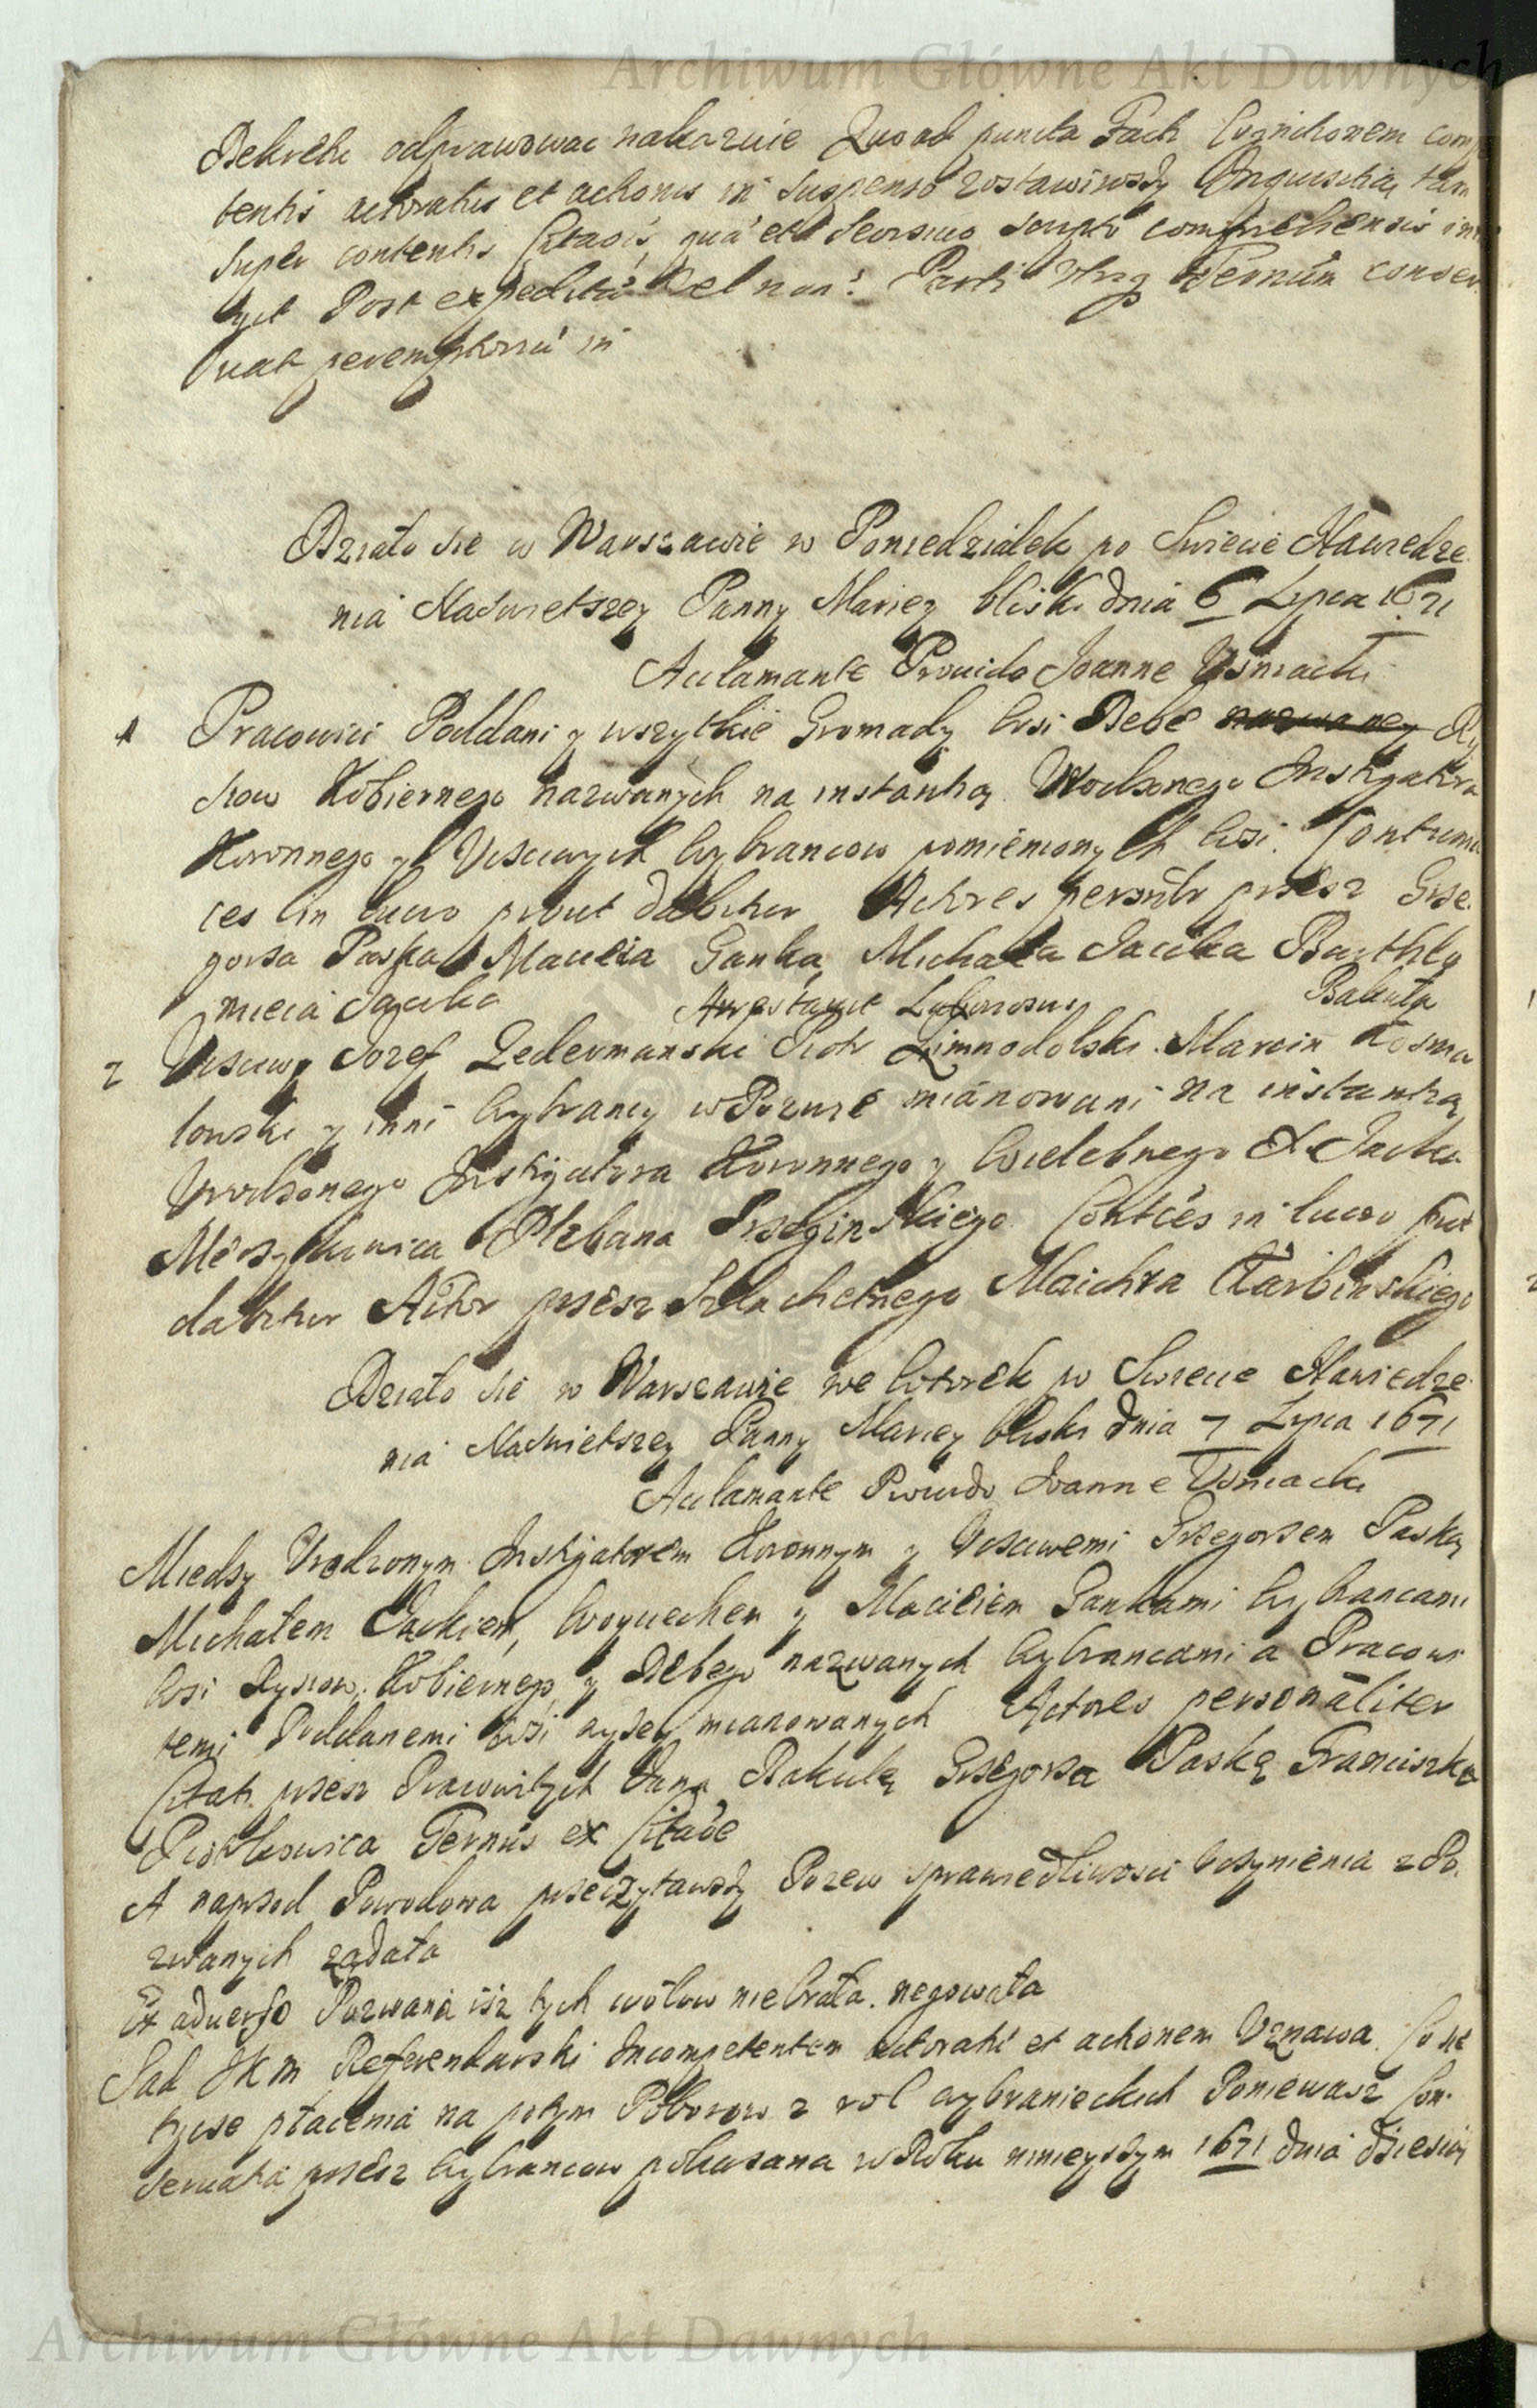 Archiwum Główne Akt Dawnych
Dekretu odprawowac nakazuie Quoad puncta Facti Cognitionem comp
tentis actoratus et actionis in suspenso zostawiwszy Inquisitią tam
super contentis Citaōis, quā et seorsiuo scripto comprehensis in
Post expeditā vel non? Parti Vtrq Termūm conser
uat peremptoriū in
Działo sie w Warszawie w Poniedziałek po Swiecie Nawiedze
nia Naswietszey Panny Mariey blisko dnia 6 Lipca 1671
Acclamante Prouido Joanne Usniacki
1 Pracowici Poddani y wszytkie Gromady wsi Debe nazwaney Ry
sow Kobiernego nazwanych na instantią Urodzonego Instigatora
Koronnego y Ucciwych wybrancow pomienionych wsi. Contuma
ces in lucro prout dabitur Actores persōnlr przesz Grze
gorza Paska Macieia Ganka, Michała Jacka Barthlo
mieia Jacka Arestauit Laboriosus Bakuła
2 Ucciwy Jozef Zedermanski Piotr Zimnodolski Marcin Kosma
lowski y inni wybrancy w Pozwie mianowani na instantią
Urodzonego Instigatora Koronnego y Wielebnego X Jacka
Plebana Contces in lucro put
dabitur Actor przesz Szlachetnego Maichra Garbinskiego
Działo sie w Warszawie we Wtorek po Swiecie Nawiedze
nia Naswietszey Panny Mariey blisko dnia 7 Lipca 1671
Acclamante Prouido Joanne Usniacki
Miedzy Urodzonym Instigatorem Koronnym y Ucciwemi Grzegorzem Paską
Michałem Jackiem, Woyciechem y Macieiem Gankami wybrancami
wsi Rysiow, Kobiernego y Debego nazwanych wybrancami a Pracowi
temi Poddanemi wsi wyzey mianowanych Actores personaliter
Citati przesz Pracowitych Jana Bakułę Grzegorza Paskę Franciszka
Piotrkowica Termūs ex Citaōe
A naprzod Powodowa przeczytawszy Pozew sprawiedliwosci uczynienia z Po
zwanych ządała
Ex aduerso Pozwana isz tych wołow nie brała. negowała
Sąd JKM Referendarski Incompetentem actoratū et actionem Uznawa. Co sie
tycse płacenia na potym Poborow z rol wybranieckich Poniewasz Con
seruatia przesz wybrancow pokazana w Roku ninieyszym 1671 dnia dziesią
Archiwum Główne Akt Dawnych